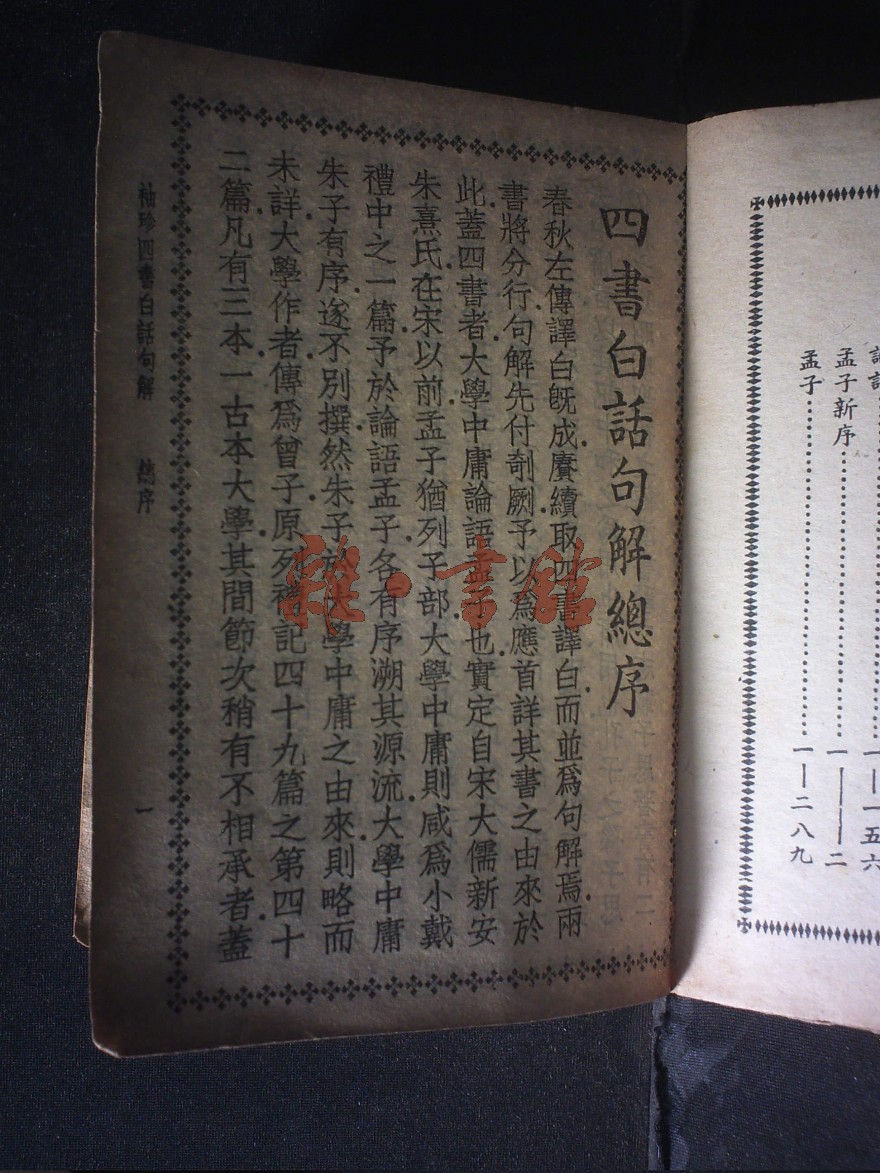 四書白話句解總序
春秋左傳譯白旣成賡續取四書譯白而並爲句解焉兩
書將分行句解先付剞劂予以爲應首詳其書之由來於
此蓋四書者大學中庸論語孟子也實定自宋大儒新安
朱熹氏在宋以前孟子猶列子部大學中庸則咸爲小戴
禮中之一篇予於論語孟子各有序溯其源流大學中庸
朱子有序遂不別撰然朱子於大學中庸之由來則略而
未詳大學作者傳爲曾子原列禮記四十九篇之第四十
二篇凡有三本一古本大學其間節次稍有不相承者蓋
袖珍四書白話句解 總序 一
一—一五六
孟子新序 一——二
孟子 一—二八九
雜·書館